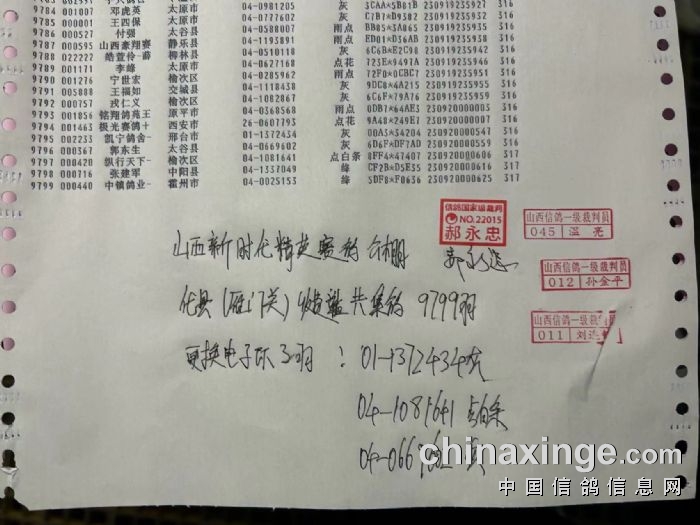 9784 001007 邓虎英 太原市 04-0981205 灰 3CAA*5B81B 230919235927 316
9785 000001 王四保 太原市 04-0777602 灰 C7B7*D9382 230919235931 316
9786 000527 付强 太谷县 04-0588007 雨点 BB05*3A065 230919235935 316
9787 000593 山西豪翔赛 静乐县 04-1193891 雨点 230919235939 316
9788 022222 皓萱伶-薛 柳林县 04-0510118 灰 6C6B*E2C98 230919235943 316
9789 001171 李峰 太谷县 04-0627168 点花 723E*9491A 230919235947 316
9790 001276 宁世宏 榆次区 04-0285962 雨点 72F0*0CBC7 230919235951 316
9791 005888 王福如 交城县 04-1118438 灰 9DC8*4A215 230919235955 316
9792 000757 戎仁义 榆次区 04-1082867 灰 6C6F*79A76 230919235959 316
9793 001856 铭翔鸽苑王 原平市 04-0368568 雨点 0DB7*64AE3 230920000003 316
9794 001463 极光赛鸽+ 西安市 26-0607793 点花 9A48*249E7 230920000007 316
9795 002233 凯宁鸽舍- 邢台市 01-1372434 灰 00A3*34204 230920000011 317
9796 000367 郭东生 太谷县 04-0669602 灰 6D6F*AF7AD 230920000029 317
9797 000420 纵行天下- 榆次区 04-1081641 点白条 8FF4*47407 230920000606 317
9798 000716 张建军 中阳县 04-1337069 绛 CF27*B5D35 230920000616 317
9799 000440 中镇鸽业- 霍州市 04-0025153 绛 SDF8*F0636 230920000625 317
信鸽国家级裁判
NO.22015
郝永忠
山西信鸽一级裁判员
045 温亮
山西新时代精英赛鸽
郝永忠
山西信鸽一级裁判员
012 孙金平
化县(雁门关) 共集鸽 9799羽
山西信鸽一级裁判员
011
更换电子环3羽: 01-1372434灰
04-1081641 点白条
chinaxinge.com
中国信鸽信息网